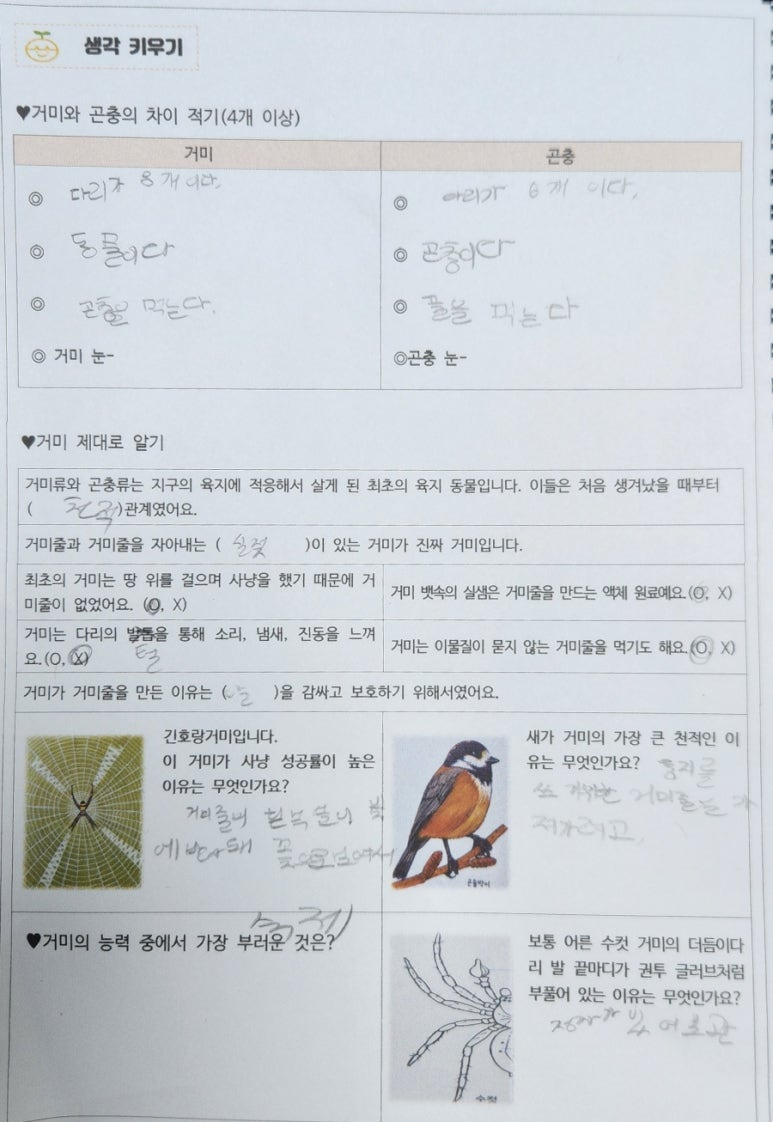 생각 키우기
♥거미와 곤충의 차이 적기(4개 이상)
거미 곤충
◎ 다리가 8개 이다. ◎ 다리가 6개 이다.
◎ 동물이다 ◎ 곤충이다
◎ 곤충을 먹는다. ◎ 풀을 먹는다
◎ 거미 눈- ◎곤충 눈-
♥거미 제대로 알기
거미류와 곤충류는 지구의 육지에 적응해서 살게 된 최초의 육지 동물입니다. 이들은 처음 생겨났을 때부터
( 천적 )관계였어요.
거미줄과 거미줄을 자아내는 ( 실젖 )이 있는 거미가 진짜 거미입니다.
최초의 거미는 땅 위를 걸으며 사냥을 했기 때문에 거
미줄이 없었어요. (O, X)
거미 뱃속의 실샘은 거미줄을 만드는 액체 원료예요.(O, X)
거미는 다리의 발톱을 통해 소리, 냄새, 진동을 느껴
요.(O, X) 털
거미는 이물질이 묻지 않는 거미줄을 먹기도 해요.(O, X)
거미가 거미줄을 만든 이유는 ( )을 감싸고 보호하기 위해서였어요.
긴호랑거미입니다.
이 거미가 사냥 성공률이 높은
이유는 무엇인가요?
거미줄의 흰
에 반사돼 꽃으로 보여서
새가 거미의 가장 큰 천적인 이
유는 무엇인가요? 둥지를
거미줄을
곤줄박이
숙제)
♥거미의 능력 중에서 가장 부러운 것은?
보통 어른 수컷 거미의 더듬이다
리 발 끝마디가 권투 글러브처럼
부풀어 있는 이유는 무엇인가요?
수컷